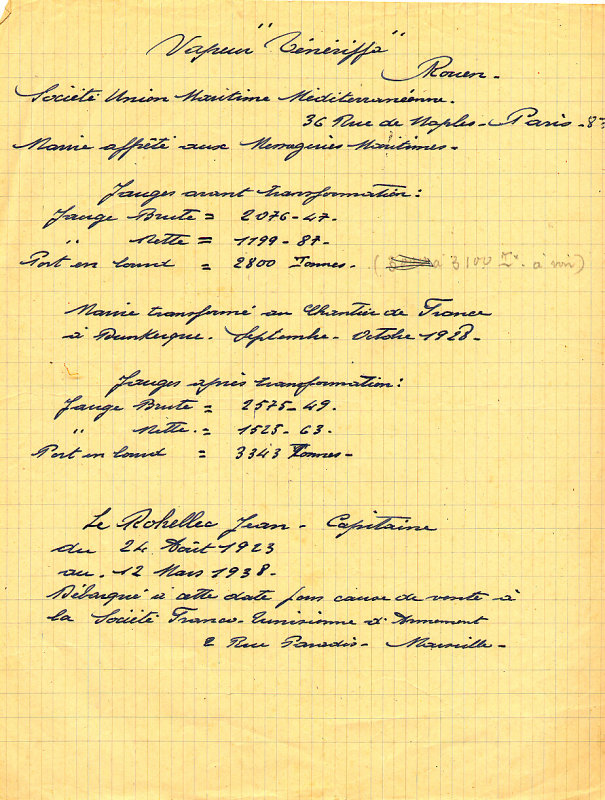 Vapeur "Ténériffa"
Rouen -
Société Union Maritime Méditerranéenne -
36 Rue de Naples - Paris - 8e
Navire affrété aux Messageries Maritimes -
Jauges avant transformation :
Jauge Brute = 2076 - 47 -
" Nette = 1199 - 87 -
Port en lourd = 2800 Tonnes . ( à 3100 Tx . à voir )
Navire transformé au Chantier de France
à Dunkerque . Septembre - Octobre 1928 -
Jauges après transformation :
Jauge Brute = 2575 - 49 .
" Nette . = 1525 - 63 .
Port en lourd = 3343 Tonnes -
Le Rohellec Jean - Capitaine
du 24 Août 1923
au . 12 Mars 1938 .
Débarqué à cette date pour cause de vente à
la Société Franco - Tunisienne d'Armement
2 Rue Paradis - Marseille -